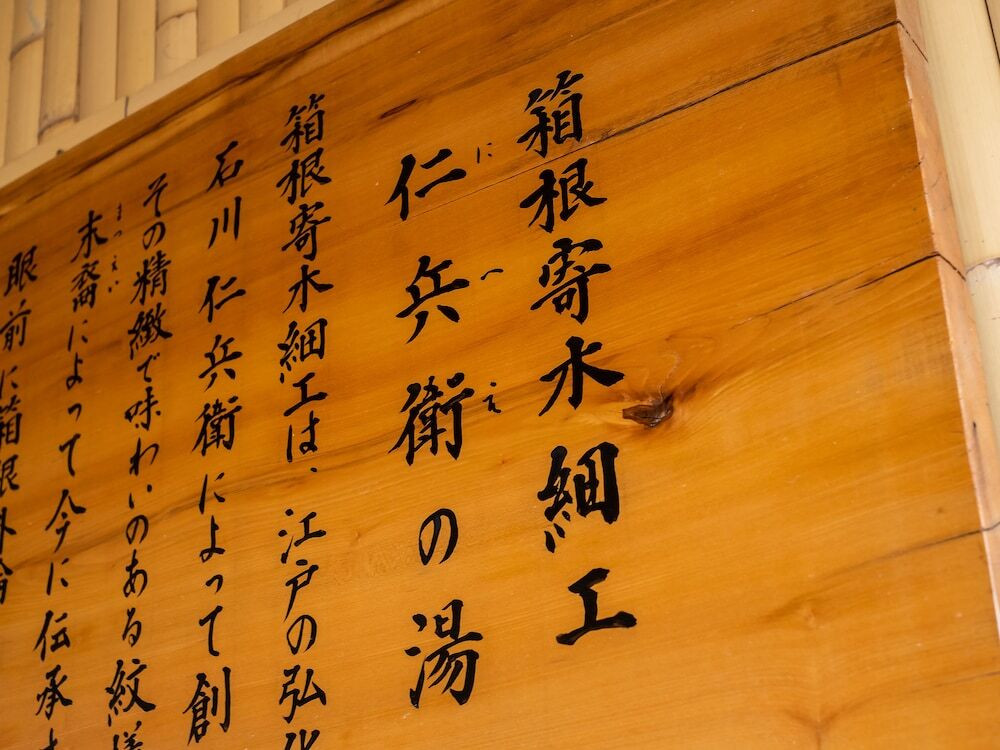 箱根寄木細工
仁兵衛の湯
に へ え
箱根寄木細工は、江戸の弘化
石川仁兵衛によって創
その精緻で味わいのある紋様
末裔によって今に伝承
まつえい
眼前に箱根外輪